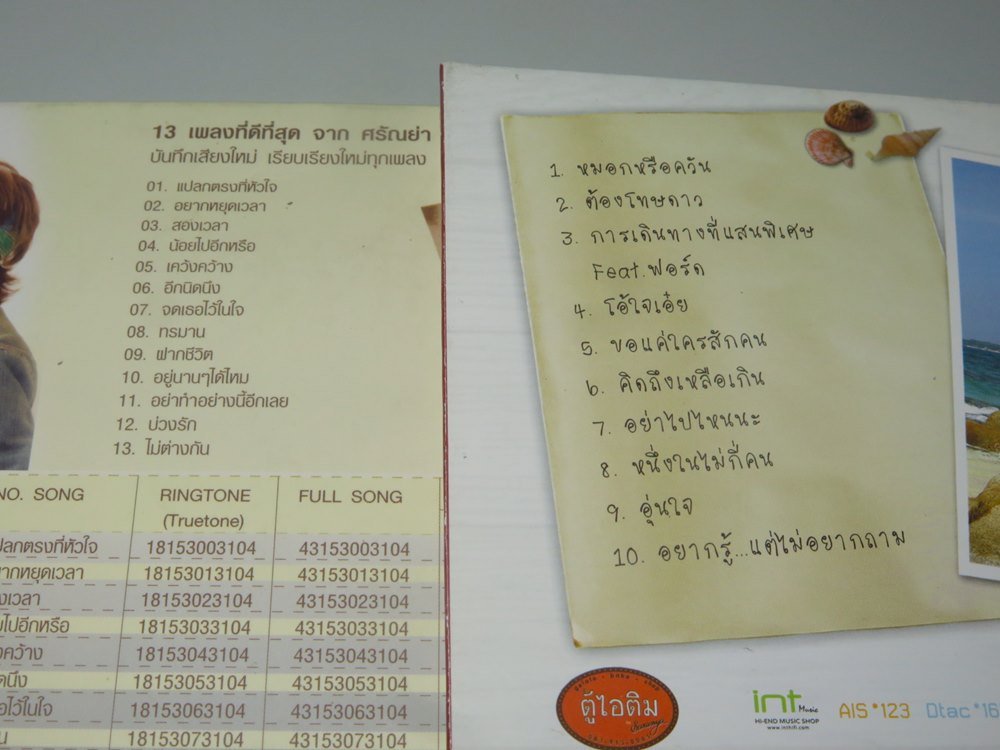 13 เพลงที่ดีที่สุด จาก ศรัณย่า
บันทึกเสียงใหม่ เรียบเรียงใหม่ทุกเพลง
01. แปลกตรงที่หัวใจ
02. อยากหยุดเวลา
03. สองเวลา
04. น้อยไปอีกหรือ
05. เคว้งคว้าง
06. อีกนิดนึง
07. จดเธอไว้ในใจ
08. ทรมาน
09. ฝากชีวิต
10. อยู่นานๆได้ไหม
11. อย่าทำอย่างนี้อีกเลย
12. บ่วงรัก
13. ไม่ต่างกัน
NO. SONG RINGTONE FULL SONG
(Truetone)
ปลกตรงที่หัวใจ 18153003104 43153003104
ยากหยุดเวลา 18153013104 43153013104
งเวลา 18153023104 43153023104
ยไปอีกหรือ 18153033104 43153033104
งคว้าง 18153043104 43153043104
ดนึง 18153053104 43153053104
อไว้ในใจ 18153063104 43153063104
น 18153073104 43153073104
1. หมอกหรือควัน
2. ต้องโทษดาว
3. การเดินทางที่แสนพิเศษ
Feat.ฟอร์ด
4. โอ้ใจเอ๋ย
5. ขอแค่ใครสักคน
6. คิดถึงเหลือเกิน
7. อย่าไปไหนนะ
8. หนึ่งในไม่กี่คน
9. อุ่นใจ
10. อยากรู้...แต่ไม่อยากถาม
ตู้ไอติม
int Music
HI-END MUSIC SHOP
www.inthifi.com
AIS *123 Dtac *16